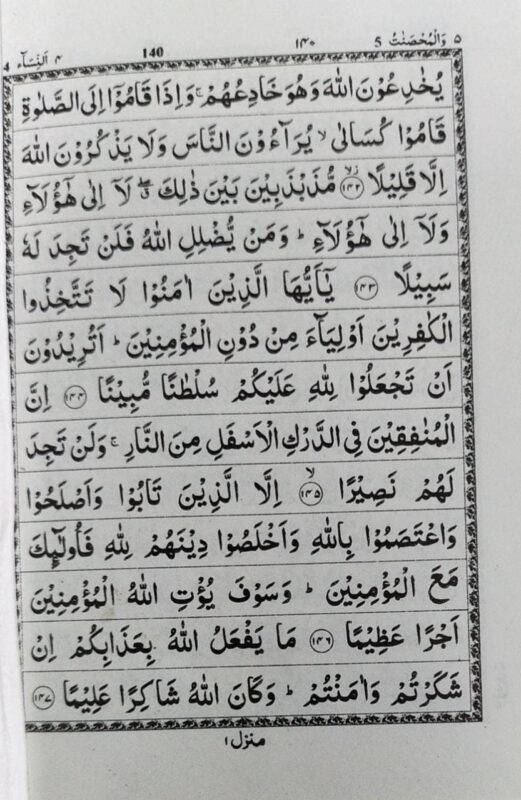 ٥ وَالْمُحْصَنٰتُ 5 ١٤٠ 140 ٤ اَلنِّسَآء 4
يُخٰدِعُوْنَ اللّٰهَ وَهُوَ خَادِعُهُمْ ۚ وَاِذَا قَامُوْۤا اِلَى الصَّلٰوةِ
قَامُوْا كُسَالٰى ۙ يُرَآءُوْنَ النَّاسَ وَلَا يَذْكُرُوْنَ اللّٰهَ
اِلَّا قَلِيْلًا ۙ۫ ﴿١٤٢﴾ مُّذَبْذَبِيْنَ بَيْنَ ذٰلِكَ ۖۗ لَاۤ اِلٰى هٰۤؤُلَآءِ
وَلَاۤ اِلٰى هٰۤؤُلَآءِ ؕ وَمَنْ يُّضْلِلِ اللّٰهُ فَلَنْ تَجِدَ لَهٗ
سَبِيْلًا ﴿١٤٣﴾ يٰۤاَيُّهَا الَّذِيْنَ اٰمَنُوْا لَا تَتَّخِذُوا
الْكٰفِرِيْنَ اَوْلِيَآءَ مِنْ دُوْنِ الْمُؤْمِنِيْنَ ؕ اَتُرِيْدُوْنَ
اَنْ تَجْعَلُوْا لِلّٰهِ عَلَيْكُمْ سُلْطٰنًا مُّبِيْنًا ﴿١٤٤﴾ اِنَّ
الْمُنٰفِقِيْنَ فِى الدَّرْكِ الْاَسْفَلِ مِنَ النَّارِ ۚ وَلَنْ تَجِدَ
لَهُمْ نَصِيْرًا ۙ ﴿١٤٥﴾ اِلَّا الَّذِيْنَ تَابُوْا وَاَصْلَحُوْا
وَاعْتَصَمُوْا بِاللّٰهِ وَاَخْلَصُوْا دِيْنَهُمْ لِلّٰهِ فَاُولٰٓئِكَ
مَعَ الْمُؤْمِنِيْنَ ؕ وَسَوْفَ يُؤْتِ اللّٰهُ الْمُؤْمِنِيْنَ
اَجْرًا عَظِيْمًا ﴿١٤٦﴾ مَا يَفْعَلُ اللّٰهُ بِعَذَابِكُمْ اِنْ
شَكَرْتُمْ وَاٰمَنْتُمْ ؕ وَكَانَ اللّٰهُ شَاكِرًا عَلِيْمًا ﴿١٤٧﴾
منزل ١